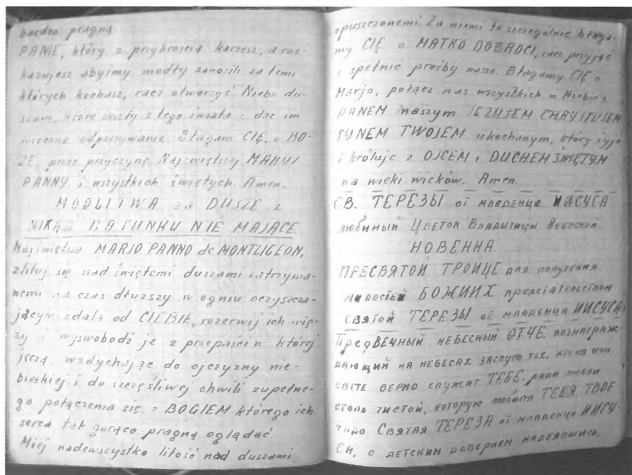 bardzo pragną
PANIE, który z przykrością karzesz, a roz-
kazujesz abyśmy modły zanosili za temi
których kochasz, racz otworzyć Niebo du-
szom, które zeszły z tego świata i dać im
wieczne odpoczywanie. Błagam CIĘ, o BO-
ŻE, przez przyczynę Najświętszej MARYI
PANNY i wszystkich świętych. Amen.
MODLITWA za DUSZE z
NIKĄD RATUNKU NIE MAJĄCE
Najświętsza MARJO PANNO de MONTLIGEON,
zlituj się nad świętemi duszami zatrzyma-
nemi na czas dłuższy w ogniu oczyszcza-
jącym zdala od CIEBIE, rozerwij ich wię-
zy i wyswobódź je z przepaści w której
jęczą, wzdychając do ojczyzny nie-
bieskiej i do szczęśliwej chwili zupełne-
go połączenia się z BOGIEM którego ich
serca tak gorąco pragną oglądać
Miej nadewszystko litość nad duszami
opuszczonemi. Za niemi to szczególnie błaga-
my CIĘ o MATKO DOBROCI, racz przyjąć
i spełnić prośby nasze. Błagamy CIĘ o
Marjo, połącz nas wszystkich w Niebie z
PANEM naszym JEZUSEM CHRYSTUSEM
SYNEM TWOJEM ukochanym, który żyje
i króluje z OJCEM i DUCHEM ŚWIĘTYM
na wieki wieków. Amen
СВ. ТЕРЕЗЫ от младенца ИИСУСА
любимый Цветок Владычицы Небесной
НОВЕННА.
ПРЕСВЯТОЙ ТРОИЦЕ для получения
милостей БОЖИИХ предстательством
Святой ТЕРЕЗЫ от младенца ИИСУСА
Предвечный небесный ОТЧЕ, вознаграж-
дающий на небесах заслуги тех, кто в сем
свете верно служат ТЕБЕ, ради любви
столь чистой, которую любила ТЕБЯ ТВОЕ
Святая ТЕРЕЗА от младенца ИИСУ-
СА, с детским доверием надеявшись,